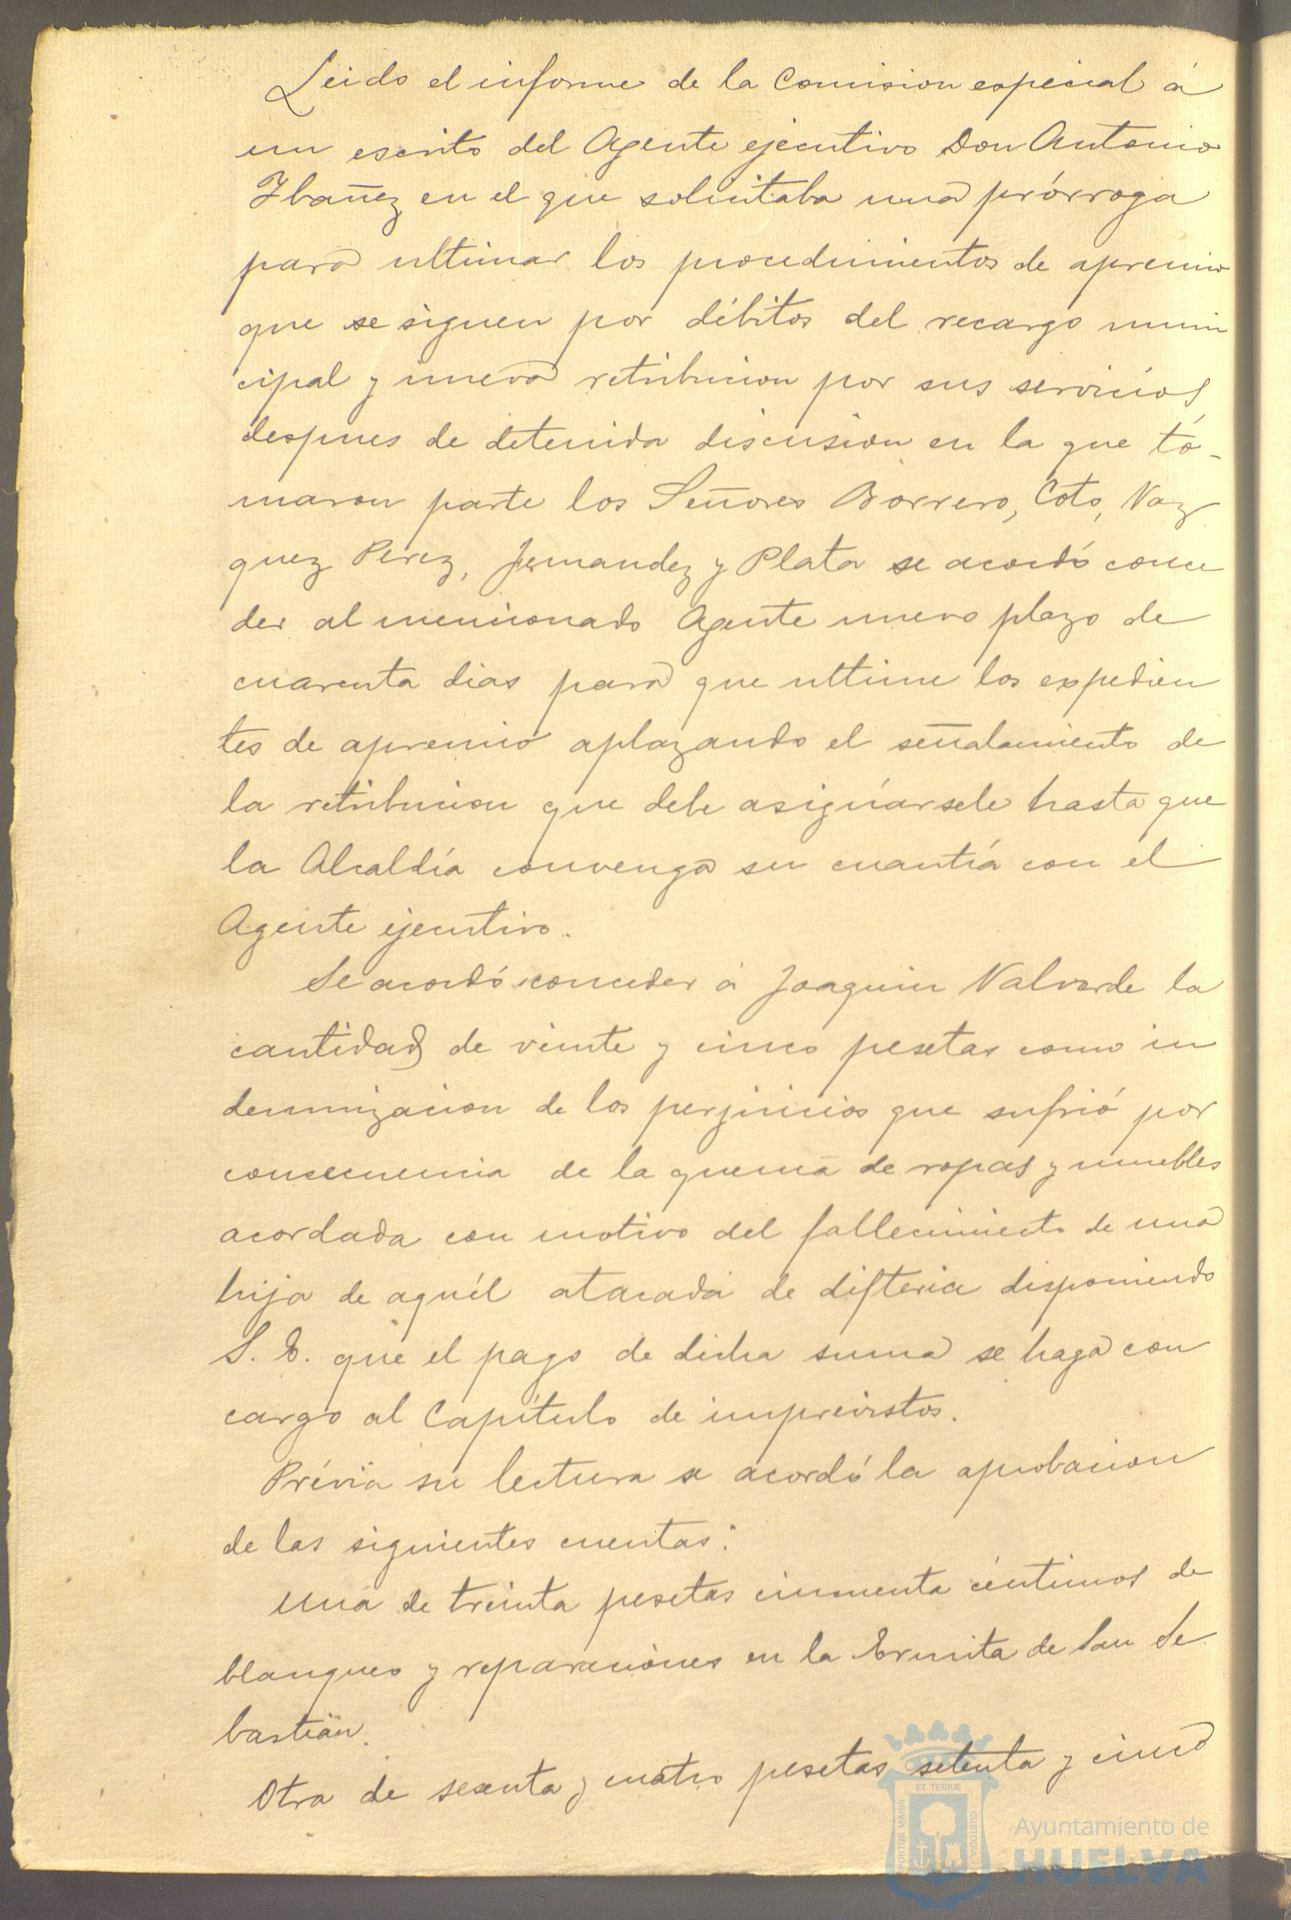 Leido el informe de la Comision especial á
un escrito del Agente ejecutivo Don Antonio
Ibañez en el que solicitaba una prórroga
para ultimar los procedimientos de apremio
que se siguen por débitos del recargo muni
cipal y nueva retribucion por sus servicios
despues de detenida discusion en la que to-
maron parte los Señores Borrero, Coto, Vaz
quez Perez, Fernandez y Plata se acordó conce
der al mencionado Agente nuevo plazo de
cuarenta dias para que ultime los expedien
tes de apremio aplazando el señalamiento de
la retribucion que debe asignársele hasta que
la Alcaldía convenga su cuantía con el
Agente ejecutivo.
Se acordó conceder á Joaquin Valverde la
cantidad de veinte y cinco pesetas como in
demnizacion de los perjuicios que sufrió por
consecuencia de la quema de ropas y muebles
acordada con motivo del fallecimiento de una
hija de aquél atacada de difteria disponiendo
S. E. que el pago de dicha suma se haga con
cargo al Capítulo de imprevistos.
Prévia su lectura se acordó la aprobacion
de las siguientes cuentas:
Una de treinta pesetas cincuenta céntimos de
blanqueo y reparaciones en la Ermita de San Se
bastián.
Otra de sesenta y cuatro pesetas setenta y cinco
ET TERRÆ
PORTUS MARIS
CUSTODIA
Ayuntamiento de
HUELVA